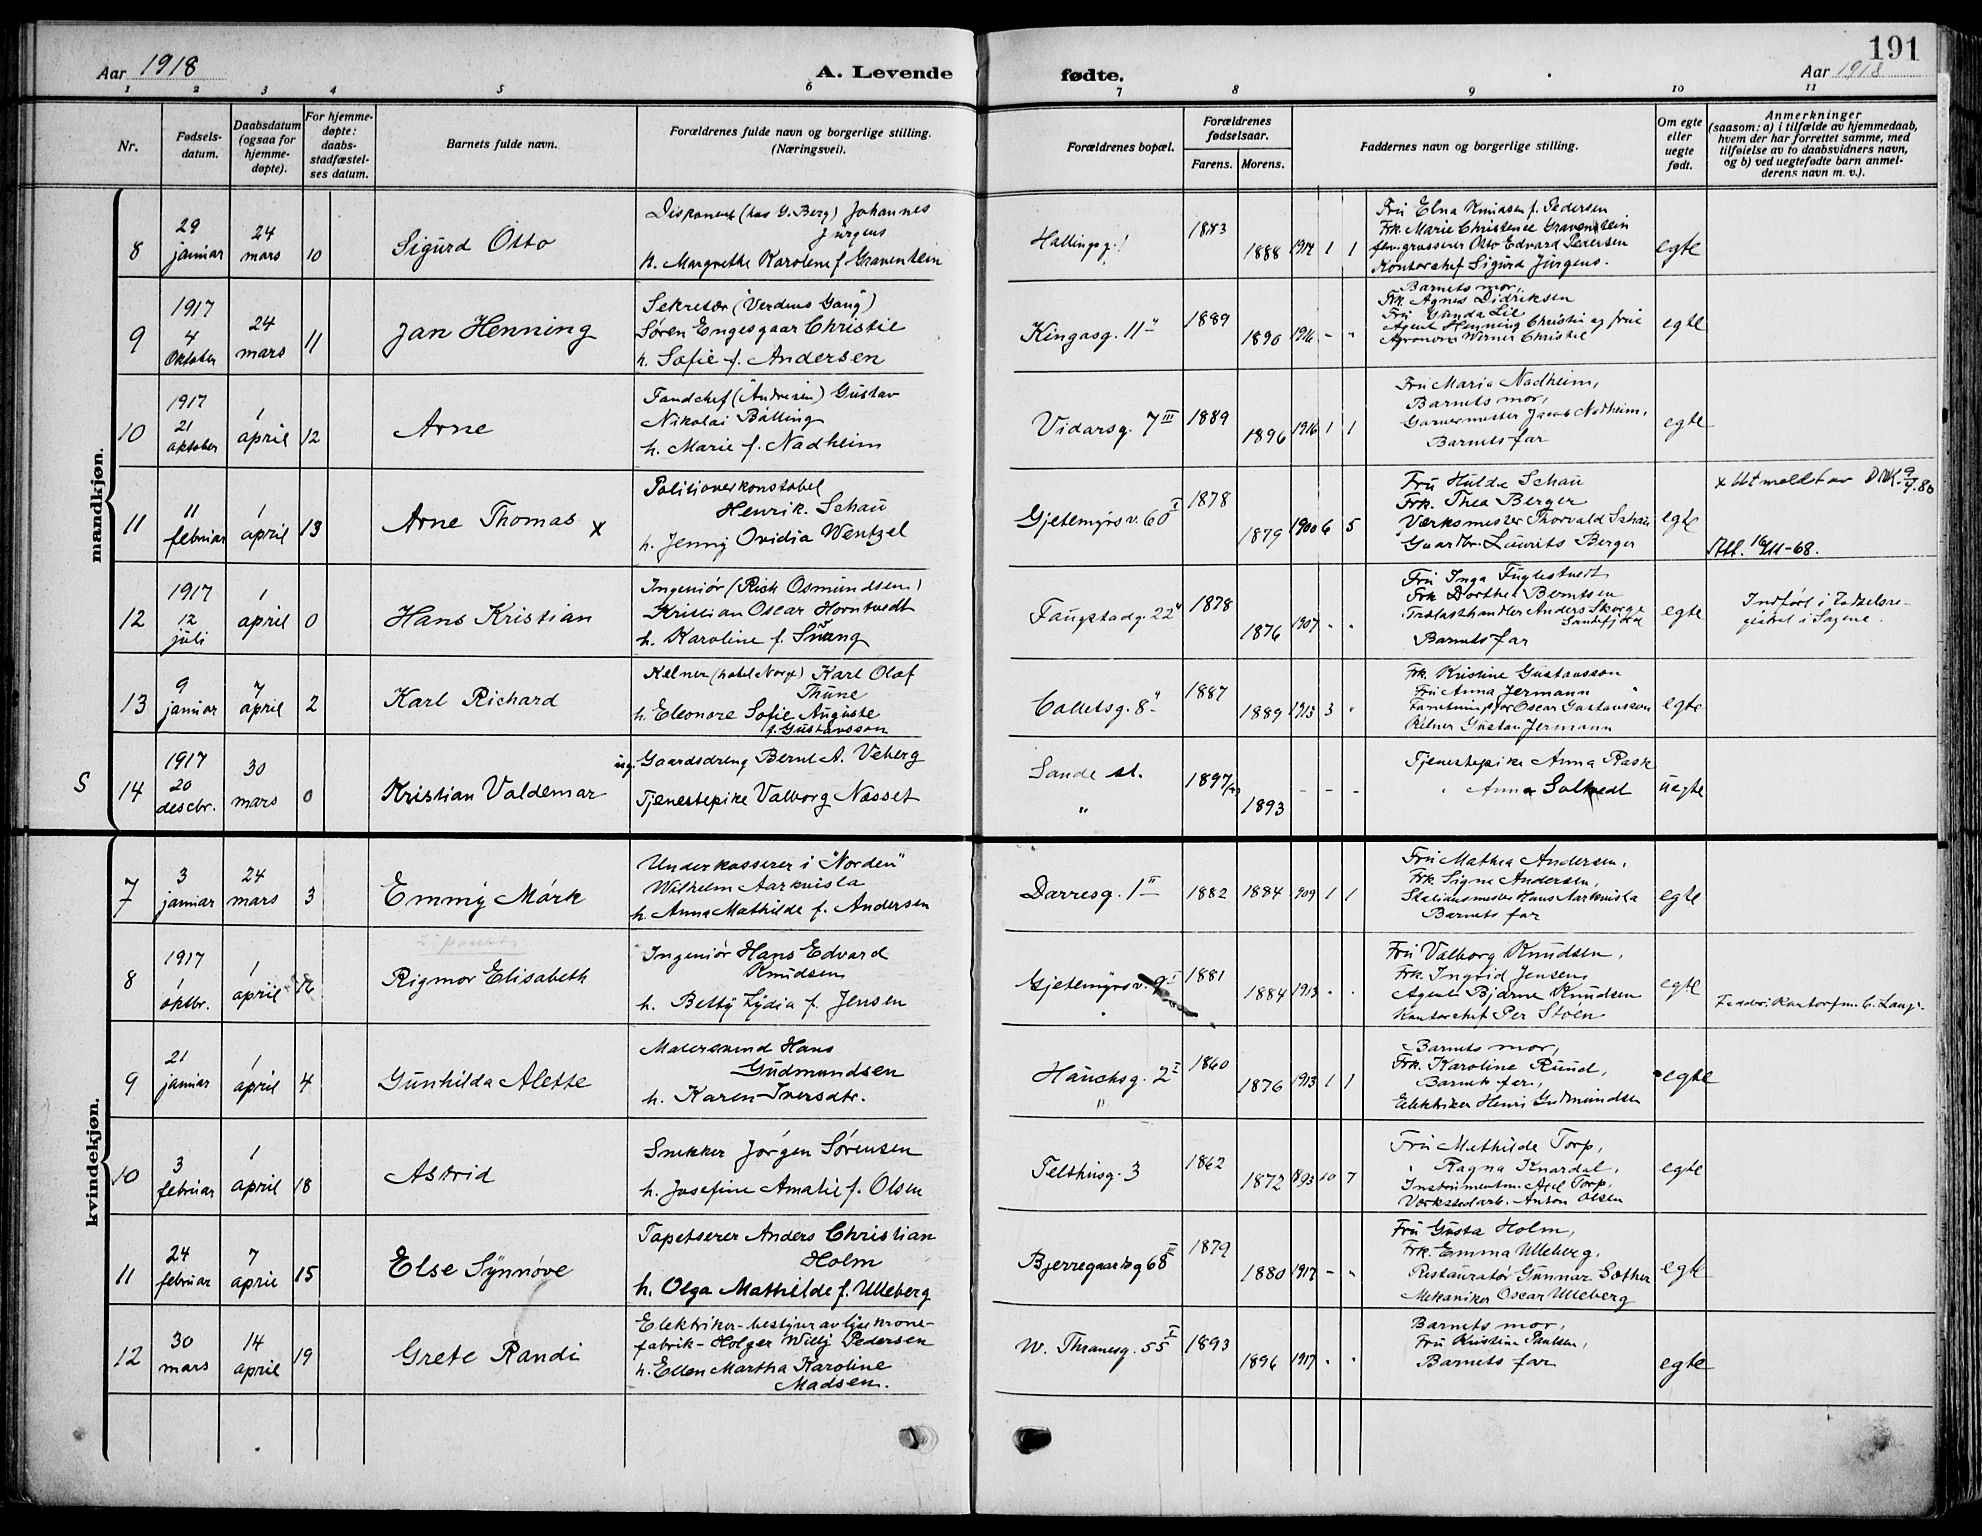 191
Aar 1918
A. Levende fødte.
Aar 1918
1 2 3 4 5 6 7 8 9 10 11
Nr.
Fødsels-
datum.
Daabsdatum
(ogsaa for
hjemme-
døpte).
For hjemme-
døpte:
daabs-
stadfæstel-
ses datum.
Barnets fulde navn.
Forældrenes fulde navn og borgerlige stilling.
(Næringsvei).
Forældrenes bopæl.
Forældrenes
fødselsaar.
Farens. Morens.
Faddernes navn og borgerlige stilling.
Om egte
eller
uegte
født.
Anmerkninger
(saasom: a) i tilfælde av hjemmedaab,
hvem der har forrettet samme, med
tilføielse av to daabsvidners navn,
og b) ved uegtefødte barn anmel-
derens navn m. v.).
mandkjøn.
8
29
januar
24
mars
10
Sigurd Otto
Disponent (hos G. Berg) Johannes
Jürgens
h. Margrethe Karoline f. Gravenstein
Hallingsg. 1
1883 1888 1914 1 1
Fru Elna Knudsen f. Pedersen
Frk. Marie Christence Gravenstein
Grosserer Otto Edvard Pedersen
Kontorchef Sigurd Jürgens.
egte
9
1917
4
Oktober
24
mars
11
Jan Henning
Sekretær (Verdens Gang)
Søren Engesgaar Christie
h. Sofie f. Andersen
Kingosg. 11
1889 1890 1916 - "
Barnets mor,
Frk. Agnes Didriksen
Fru Vanda Lie
Agent Henning Christie og frue
Agronom Werner Christie
egte
10
1917
21
oktober
1
april
12
Arne
Tandchef (Andresen) Gustav
Nikolai Bölling
h. Marie f. Nadheim
Vidarsg. 7 III
1889 1896 1916 1 1
Fru Maria Nadheim,
Barnets mor,
Garvermester Jacob Nadheim,
Barnets far
egte
11
11
februar
1
april
13
Arne Thomas x
Politioverkonstabel
Henrik Schau
h. Jenny Ovidia Wentzel
Gjetemyrsv. 60 I
1878 1879 1900 6 5
Fru Hulda Schau
Frk. Thea Berger
Værksmester Thorvald Schau
Gaardbr. Laurits Berger
egte
x Utmeldt av DNK. 9/4.80
Att. 16/11-68.
12
1917
12
juli
1
april
0
Hans Kristian
Ingeniør (Rich Osmundsen)
Kristian Oscar Horntvedt
h. Karoline f. Svang
Faugstadg. 22
1878 1876 1907 - -
Fru Inga Fuglestvedt
Frk Dorthea Berntsen
Trælasthandler Anders Skorge
Sandefjord
Barnets far
egte
Indført i Fødselsre-
gistret i Sagene.
13
9
januar
7
april
2
Karl Richard
Kelner (hotel Norge) Karl Olaf
Thune
h. Eleonore Sofie Auguste
f. Gustavsson
Colletsg. 8
1887 1889 1913 3 "
Frk. Kristine Gustavsson
Fru Anna Jermann
Oscar Gustavsson
Kelner Gustav Jermann
egte
S
14
1917
20
desebr.
30
mars
0
Kristian Valdemar
Gaardsdreng Bernt A. Veberg
Tjenestepike Valborg Næsset
Sande st.
"
1897 1893 - - -
Tjenestepike Anna Rask
" Anna Solvedt
uegte
kvindekjøn.
7
3
januar
24
mars
3
Emmy Mørk
Underkasserer i "Norden"
Wilhelm Aarkvisla
h. Anna Mathilde f. Andersen
Darresg. 1 II
1882 1884 1909 1 1
Fru Mathea Andersen,
Frk. Signe Andersen,
Stationsmester Hans Aarkvisla
Barnets far
egte
8
1917
1
oktbr.
1
april
16
Rigmor Elisabeth
Ingeniør Hans Edvard
Knudsen
h. Betty Lydia f. Jensen
Gjetemyrsv. 9 I
"
1881 1884 1913 - -
Fru Valborg Knudsen,
Frk. Ingrid Jensen,
Agent Bjarne Knudsen
Kontorchef Per Støen
egte
Fadder: Kontorfm. C. Lange
9
21
januar
1
april
4
Gunhilda Alette
Malersvend Hans
Gudmundsen
h. Karen Iversdtr.
Hauchsg. 2 I
"
1860 1876 1913 1 1
Barnets mor,
Frk. Karoline Ruud,
Barnets far,
Elektriker Henri Gudmundsen
egte
10
3
februar
1
april
18
Astrid
Snekker Jørgen Sørensen
h. Josefine Amalie f. Olsen
Telthusg. 3
1862 1872 1893 10 7
Fru Mathilde Torp,
" Ragna Knardal,
Instrumentm. Axel Torp,
Verkstedarb. Anton Olsen
egte
11
24
februar
7
april
15
Else Synnøve
Tapetserer Anders Christian
Holm
h. Olga Mathilde f. Ulleberg
Bjerregaardsg 68 III
1879 1880 1917 - -
Fru Gusta Holm,
Frk. Emma Ulleberg,
Restauratør Gunnar Sæther
Mekaniker Oscar Ulleberg
egte
12
30
mars
14
april
19
Grete Randi
Elektriker-bestyrer av lysekrone-
fabrik - Holger Willy Pedersen
h. Ellen Martha Karoline
Madsen.
W. Thranesg. 55 I
1893 1896 1917 - "
Barnets mor,
Fru Kristine Paulsen,
Barnets far
egte